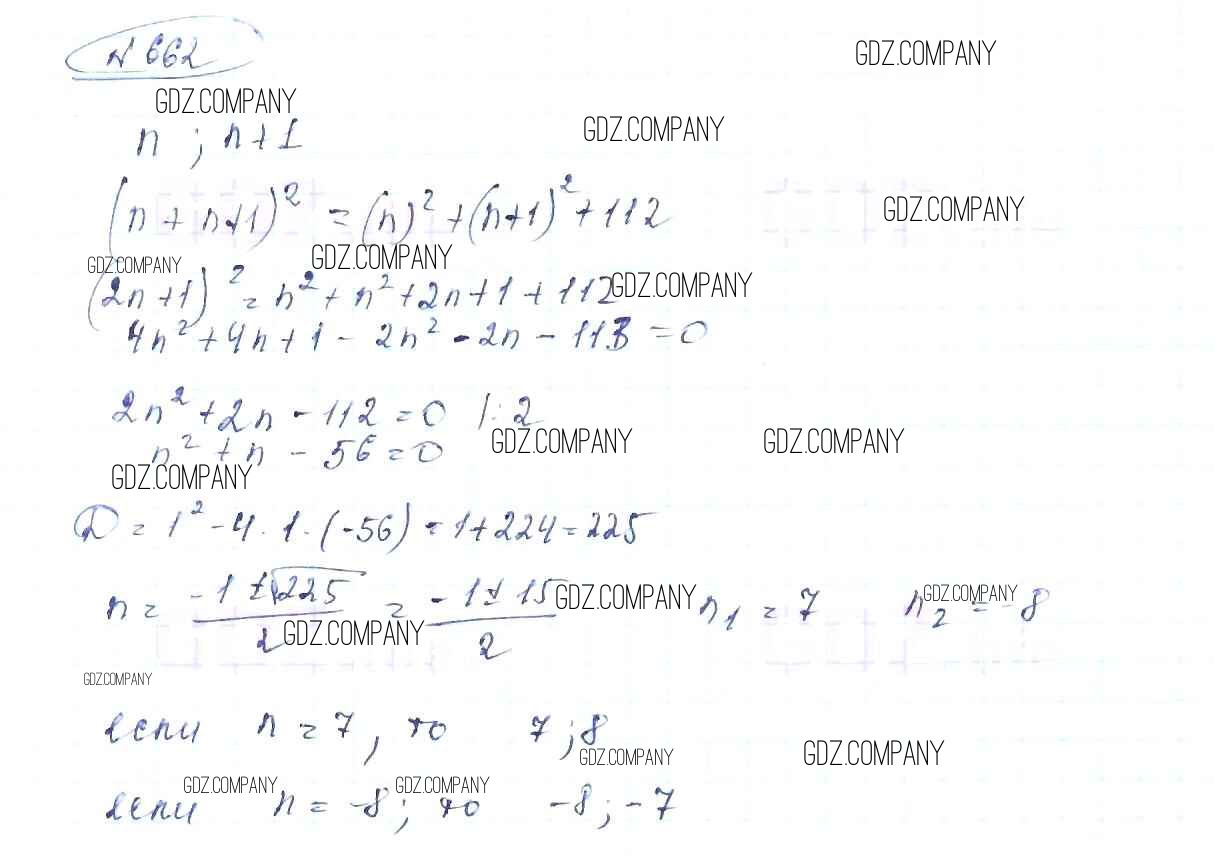 № 662
GDZ.COMPANY
GDZ.COMPANY
n ; n+1
GDZ.COMPANY
(n + n+1)² = (n)² + (n+1)² + 112
GDZ.COMPANY
GDZ.COMPANY
GDZ.COMPANY
(2n+1)² = n² + n² + 2n + 1 + 112
GDZ.COMPANY
4n² + 4n + 1 - 2n² - 2n - 113 = 0
2n² + 2n - 112 = 0 |: 2
n² + n - 56 = 0
GDZ.COMPANY
GDZ.COMPANY
GDZ.COMPANY
D = 1² - 4 · 1 · (-56) = 1 + 224 = 225
n = (-1 ± √225)/2 = (-1 ± 15)/2 n₁ = 7 n₂ = -8
GDZ.COMPANY
GDZ.COMPANY
GDZ.COMPANY
GDZ.COMPANY
если n = 7, то 7 ; 8
GDZ.COMPANY
GDZ.COMPANY
GDZ.COMPANY
GDZ.COMPANY
если n = -8; то -8 ; -7